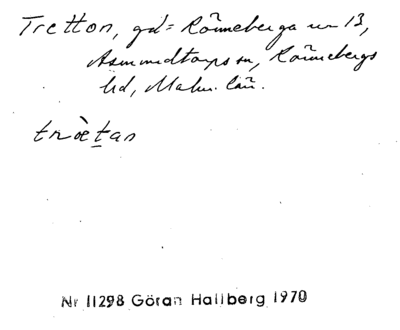 Tretton, gd = Rönneberga nr 13,
Asmundtorps sn, Rönnebergs
hd, Malm. län.
trètan
Nr 11298 Göran Hallberg 1970